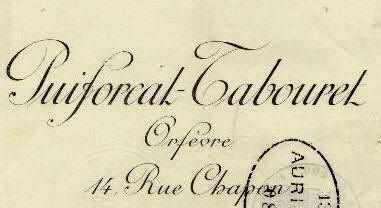 Puiforcat-Tabouret
Orfèvre
14, Rue Chapon
AURI